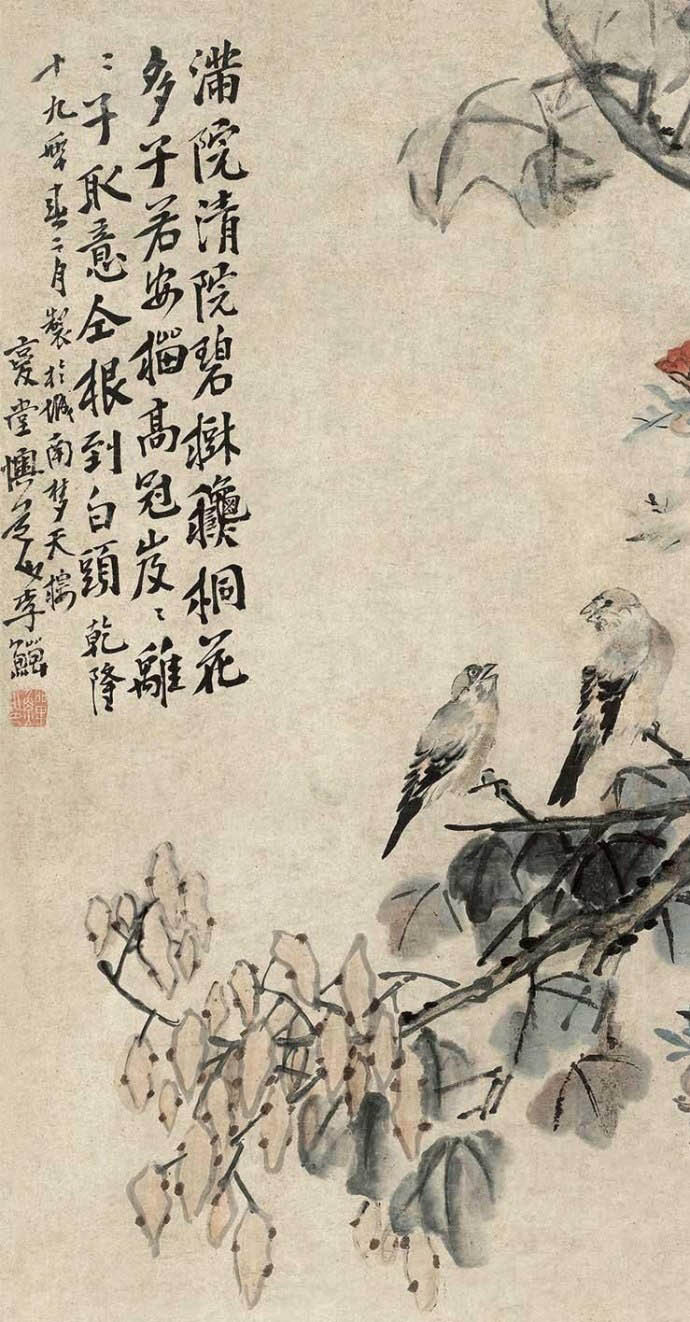 滿院清院碧樹龝桐花
多子若安榴高冠岌〻離
〻子取意仝根到白頭乾隆
十九年春二月製於城南梦天樓
复堂懊道人李鱓